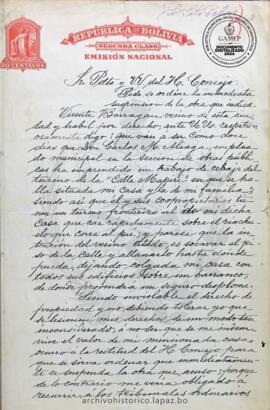 REPUBLICA DE BOLIVIA
SEGUNDA CLASE
EMISIÓN NACIONAL
20 CENTAVOS
GAMLP
DOCUMENTO
DIGITALIZADO
2024
Sr. Pdte y VV. del H. Concejo
Pide se ordene la inmediata
suspension de la obra que indica.
Vicente Barragan, vecino de esta ciu-
dad y habil por derecho ante VV. respetu-
osamente digo: que van ya como doce
dias que Don Carlos M. Aliaga, emplea-
do municipal en la seccion de obras publi-
cas ha emprendido un trabajo de rebaje del
terreno de la Calle Mapiri en que se ha-
lla situada mi casa y la de mi familia,
siendo asi que el y sus copropietarios tie-
nen un terreno fronterizo al de mi dicha
Casa que cae rapidamente sobre el riachue-
lo que corre al pié; y parece que la in-
tencion del vecino dicho, es socavar el pi-
so de la calle y allanarlo hasta donde
puede, dejando colgada mi casa con
todos sus edificios sobre un barranco,
de donde provendrá un seguro desplome.
Siendo inviolable el derecho de
propiedad y no debiendo tolerar yo que
se lesionen mis derechos de un modo tan
inconsiderado, á no ser que se me indem-
nice el valor de mi mencionada casa,
ocurro a la rectitud del H. Concejo para
que se sirva ordenar que inmediatamen-
te se suspenda la obra que acuso; porque
de lo contrario me veria obligado a
recurrir a los tribunales ordinarios
archivohistorico.lapaz.bo